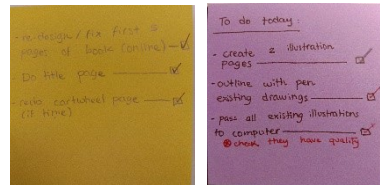 - re-design / fix first 2
pages of book (online)
- Do title page
- redo cartwheel page
(if time)
To do today:
- create 2 illustration
pages
- outline with pen
existing drawings
- pass all existing illustrations
to computer
check they have quality